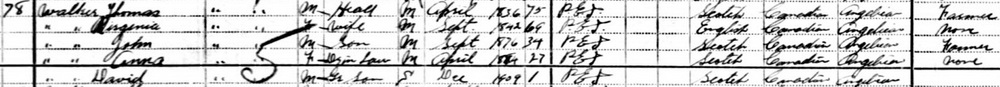 78 Walker Thomas " " M Head M April 1836 75 P E I Scotch Canadian Anglican Farmer
" " Virginia " " F Wife M Sept 1842 69 P E I English Canadian Anglican none
" " John " " M Son M Sept 1876 34 P E I Scotch Canadian Anglican Farmer
" " Anna " " F M April 27 P E I Scotch Canadian Anglican none
" " David " " M Gr. Son S Dec 1909 1 P E I Scotch Canadian Anglican